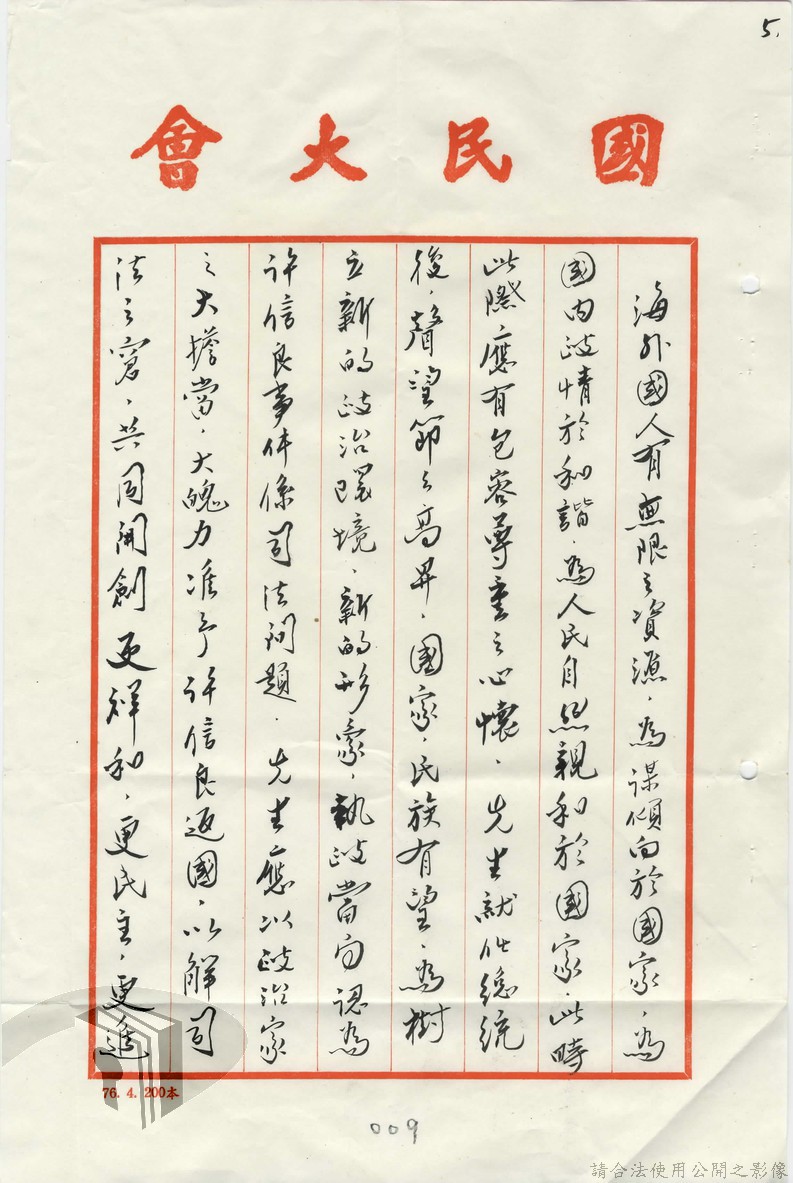 5.
國民大會
海外國人有無限之資源，為謀傾向於國家，為
國內政情於和諧，為人民自然親和於國家，此時
此際，應有包容尊重之心懷，先生就任總統
後，聲望節之高昇，國家、民族有望，為樹
立新的政治環境，新的形象，執政當局認為
許信良事件係司法問題，先生應以政治家
之大擔當，大魄力准予許信良返國，以解司
法之窘，共同開創更祥和，更民主，更進
76. 4. 200本
009
請合法使用公開之影像